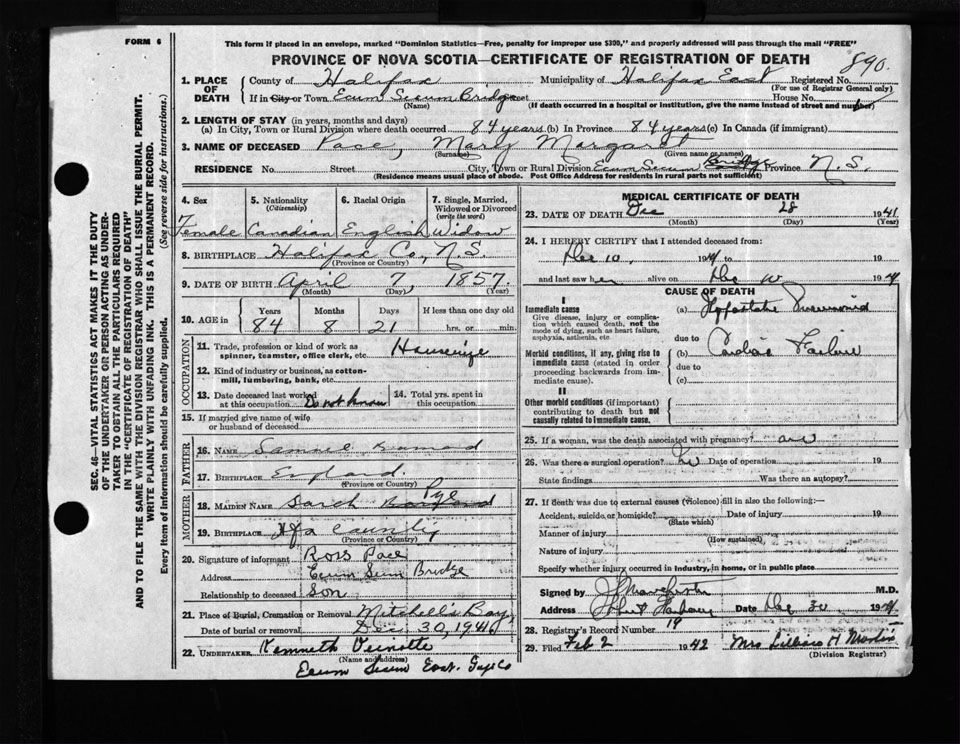 FORM 6
This form if placed in an envelope, marked "Dominion Statistics—Free, penalty for improper use $300," and properly addressed will pass through the mail "FREE"
PROVINCE OF NOVA SCOTIA—CERTIFICATE OF REGISTRATION OF DEATH
890
1. PLACE OF DEATH County of Halifax Municipality of Halifax East Registered No.
(For use of Registrar General only)
If in City or Town Ecum Secum Bridge Street House No.
(Name) (If death occurred in a hospital or institution, give the name instead of street and number)
2. LENGTH OF STAY (in years, months and days)
(a) In City, Town or Rural Division where death occurred 84 years (b) In Province 84 years (c) In Canada (if immigrant)
3. NAME OF DECEASED Pace, Mary Margaret
(Surname) (Given name or names)
RESIDENCE No. Street City, Town or Rural Division Ecum Secum Bridge Province N.S.
(Residence means usual place of abode. Post Office Address for residents in rural parts not sufficient)
4. Sex 5. Nationality (Citizenship) 6. Racial Origin 7. Single, Married, Widowed or Divorced (write the word)
Female Canadian English Widow
8. BIRTHPLACE Halifax Co, N.S.
(Province or Country)
9. DATE OF BIRTH April 7, 1857
(Month) (Day) (Year)
10. AGE in Years Months Days If less than one day old
84 8 21 hrs. or min.
OCCUPATION
11. Trade, profession or kind of work as spinner, teamster, office clerk, etc. Housewife
12. Kind of industry or business, as cotton-mill, lumbering, bank, etc.
13. Date deceased last worked at this occupation Do not know 14. Total yrs. spent in this occupation
15. If married give name of wife or husband of deceased
FATHER
16. NAME Samuel
17. BIRTHPLACE England
(Province or Country)
MOTHER
18. MAIDEN NAME Sarah Pye
19. BIRTHPLACE Hfx County
(Province or Country)
20. Signature of informant Ross Pace
Address Ecum Secum Bridge
Relationship to deceased Son
21. Place of Burial, Cremation or Removal Mitchells Bay
Date of burial or removal Dec 30, 1941
22. UNDERTAKER Kenneth
(Name and address)
Ecum Secum East. Guys Co
MEDICAL CERTIFICATE OF DEATH
23. DATE OF DEATH Dec 28 1941
(Month) (Day) (Year)
24. I HEREBY CERTIFY that I attended deceased from:
Dec 10, 1941 to 19
and last saw her alive on Dec 10 1941
CAUSE OF DEATH
I
Immediate cause
Give disease, injury or complication which caused death, not the mode of dying, such as heart failure, asphyxia, asthenia, etc.
(a) Hypostatic Pneumonia
due to
Morbid conditions, if any, giving rise to immediate cause (stated in order proceeding backwards from immediate cause).
(b) Cardiac Failure
due to
(c)
II
Other morbid conditions (if important) contributing to death but not causally related to immediate cause.
25. If a woman, was the death associated with pregnancy?
26. Was there a surgical operation? No Date of operation 19
State findings Was there an autopsy?
27. If death was due to external causes (violence) fill in also the following:—
Accident, suicide or homicide? Date of injury 19
(State which)
Manner of injury
(How sustained)
Nature of injury
Specify whether injury occurred in industry, in home, or in public place
Signed by M.D.
Address Date Dec 30 1941
28. Registrar's Record Number 19
29. Filed Feb 2 1942 Mrs Lillian H Martin
(Division Registrar)
SEC. 46—VITAL STATISTICS ACT MAKES IT THE DUTY
OF THE UNDERTAKER OR PERSON ACTING AS UNDER-
TAKER TO OBTAIN ALL THE PARTICULARS REQUIRED
IN THE "CERTIFICATE OF REGISTRATION OF DEATH"
AND TO FILE THE SAME WITH THE DIVISION REGISTRAR WHO SHALL ISSUE THE BURIAL PERMIT.
WRITE PLAINLY WITH UNFADING INK. THIS IS A PERMANENT RECORD.
Every item of information should be carefully supplied. (See reverse side for instructions.)